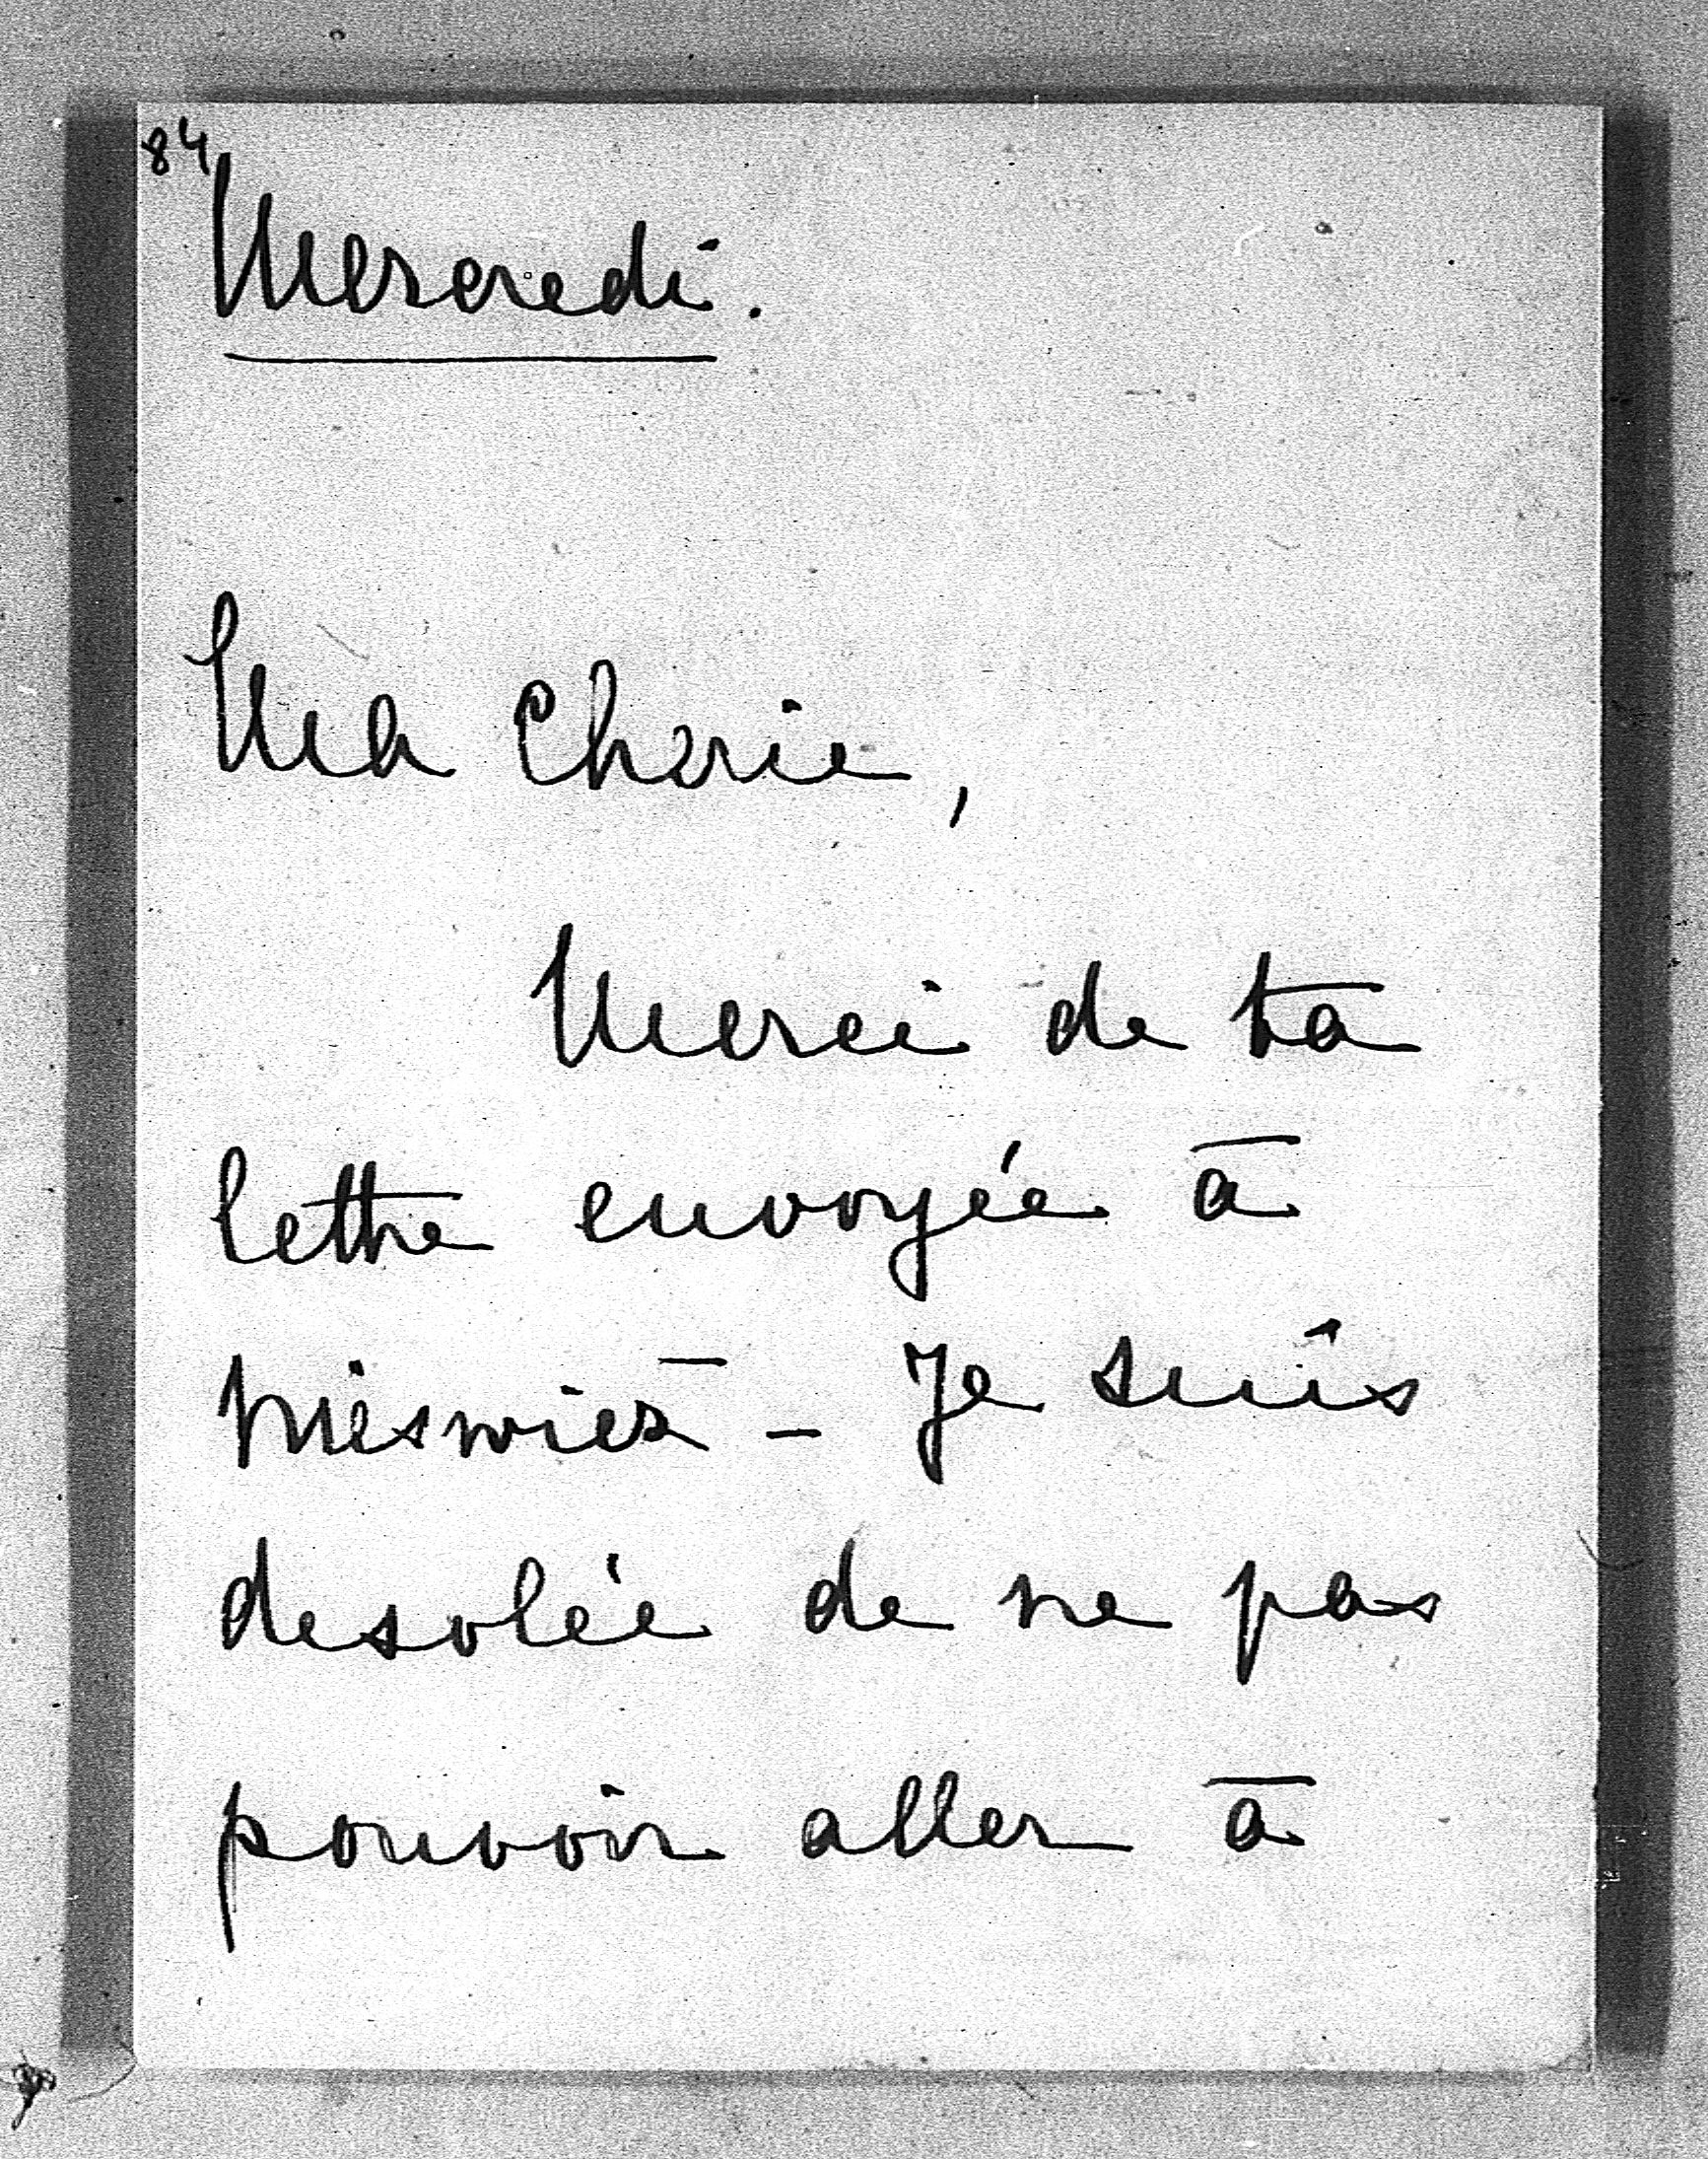 84
Mercredi.
Ma Cherie,
Merci de ta
lettre envoyée à
Nieswiez - Je suis
desolée de ne pas
pouvoir aller à